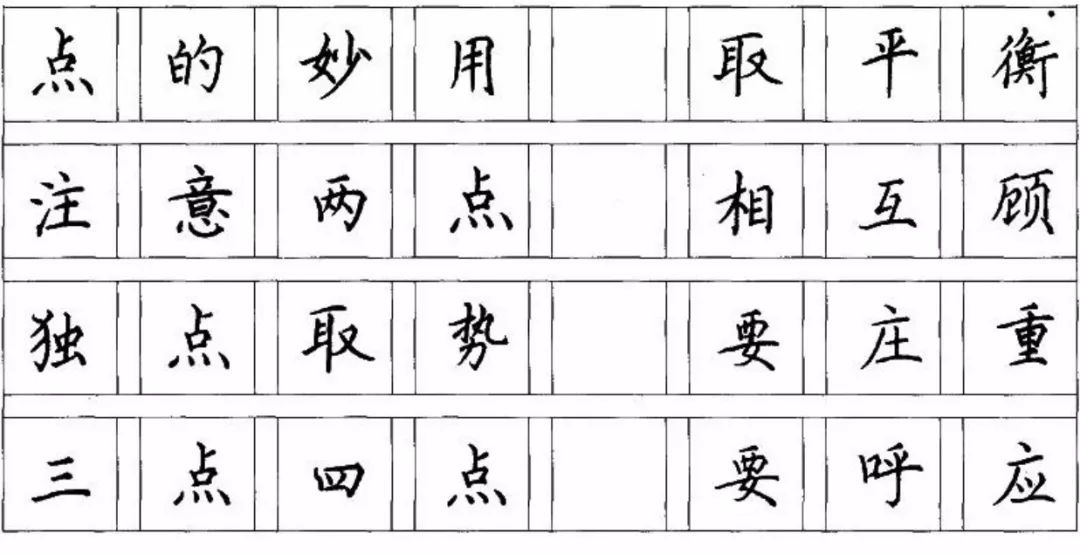 点的妙用 取平衡
注意两点 相互顾
独点取势 要庄重
三点四点 要呼应